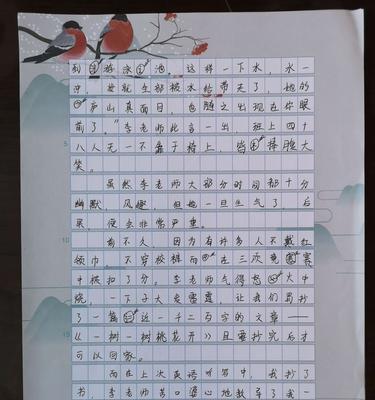 到游泳池，这样一下水，水一
冲，妆就全部被水给带走了，她的
“庐山真面目，也随之出现在你眼
前了。”李老师此言一出，班上四十
5 八人无一不靠于椅上，皆捧腹大
笑。
虽然李老师大部分时间都十分
幽默、风趣，但她一旦生气了，后
果，便会非常严重。
10 前不久，因为有许多人不戴红
领巾，不穿校裤而在三次竞赛
中被扣了分。李老师气得怒火中
烧，一下子大发雷霆，让我们罚抄
了一篇近一千二百字的文章——
15 《一树一树桃花开》且要抄完后才
可以回家。
而在上次英语听写中，我抄了
书，李老师苦口婆心地教导了我一